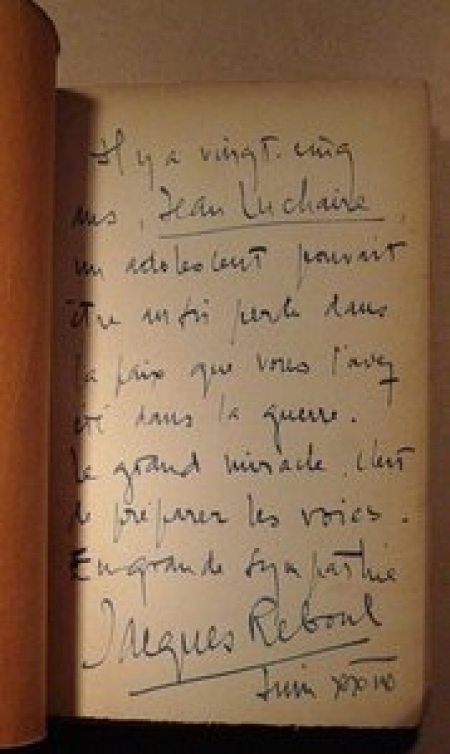 Il y a vingt-cinq
ans, Jean Luchaire,
un adolescent pouvait
être aussi perdu dans
la paix que vous l'avez
été dans la guerre.
Le grand miracle, c'est
de préparer les voies.
En grande sympathie
Jacques Reboul
Juin